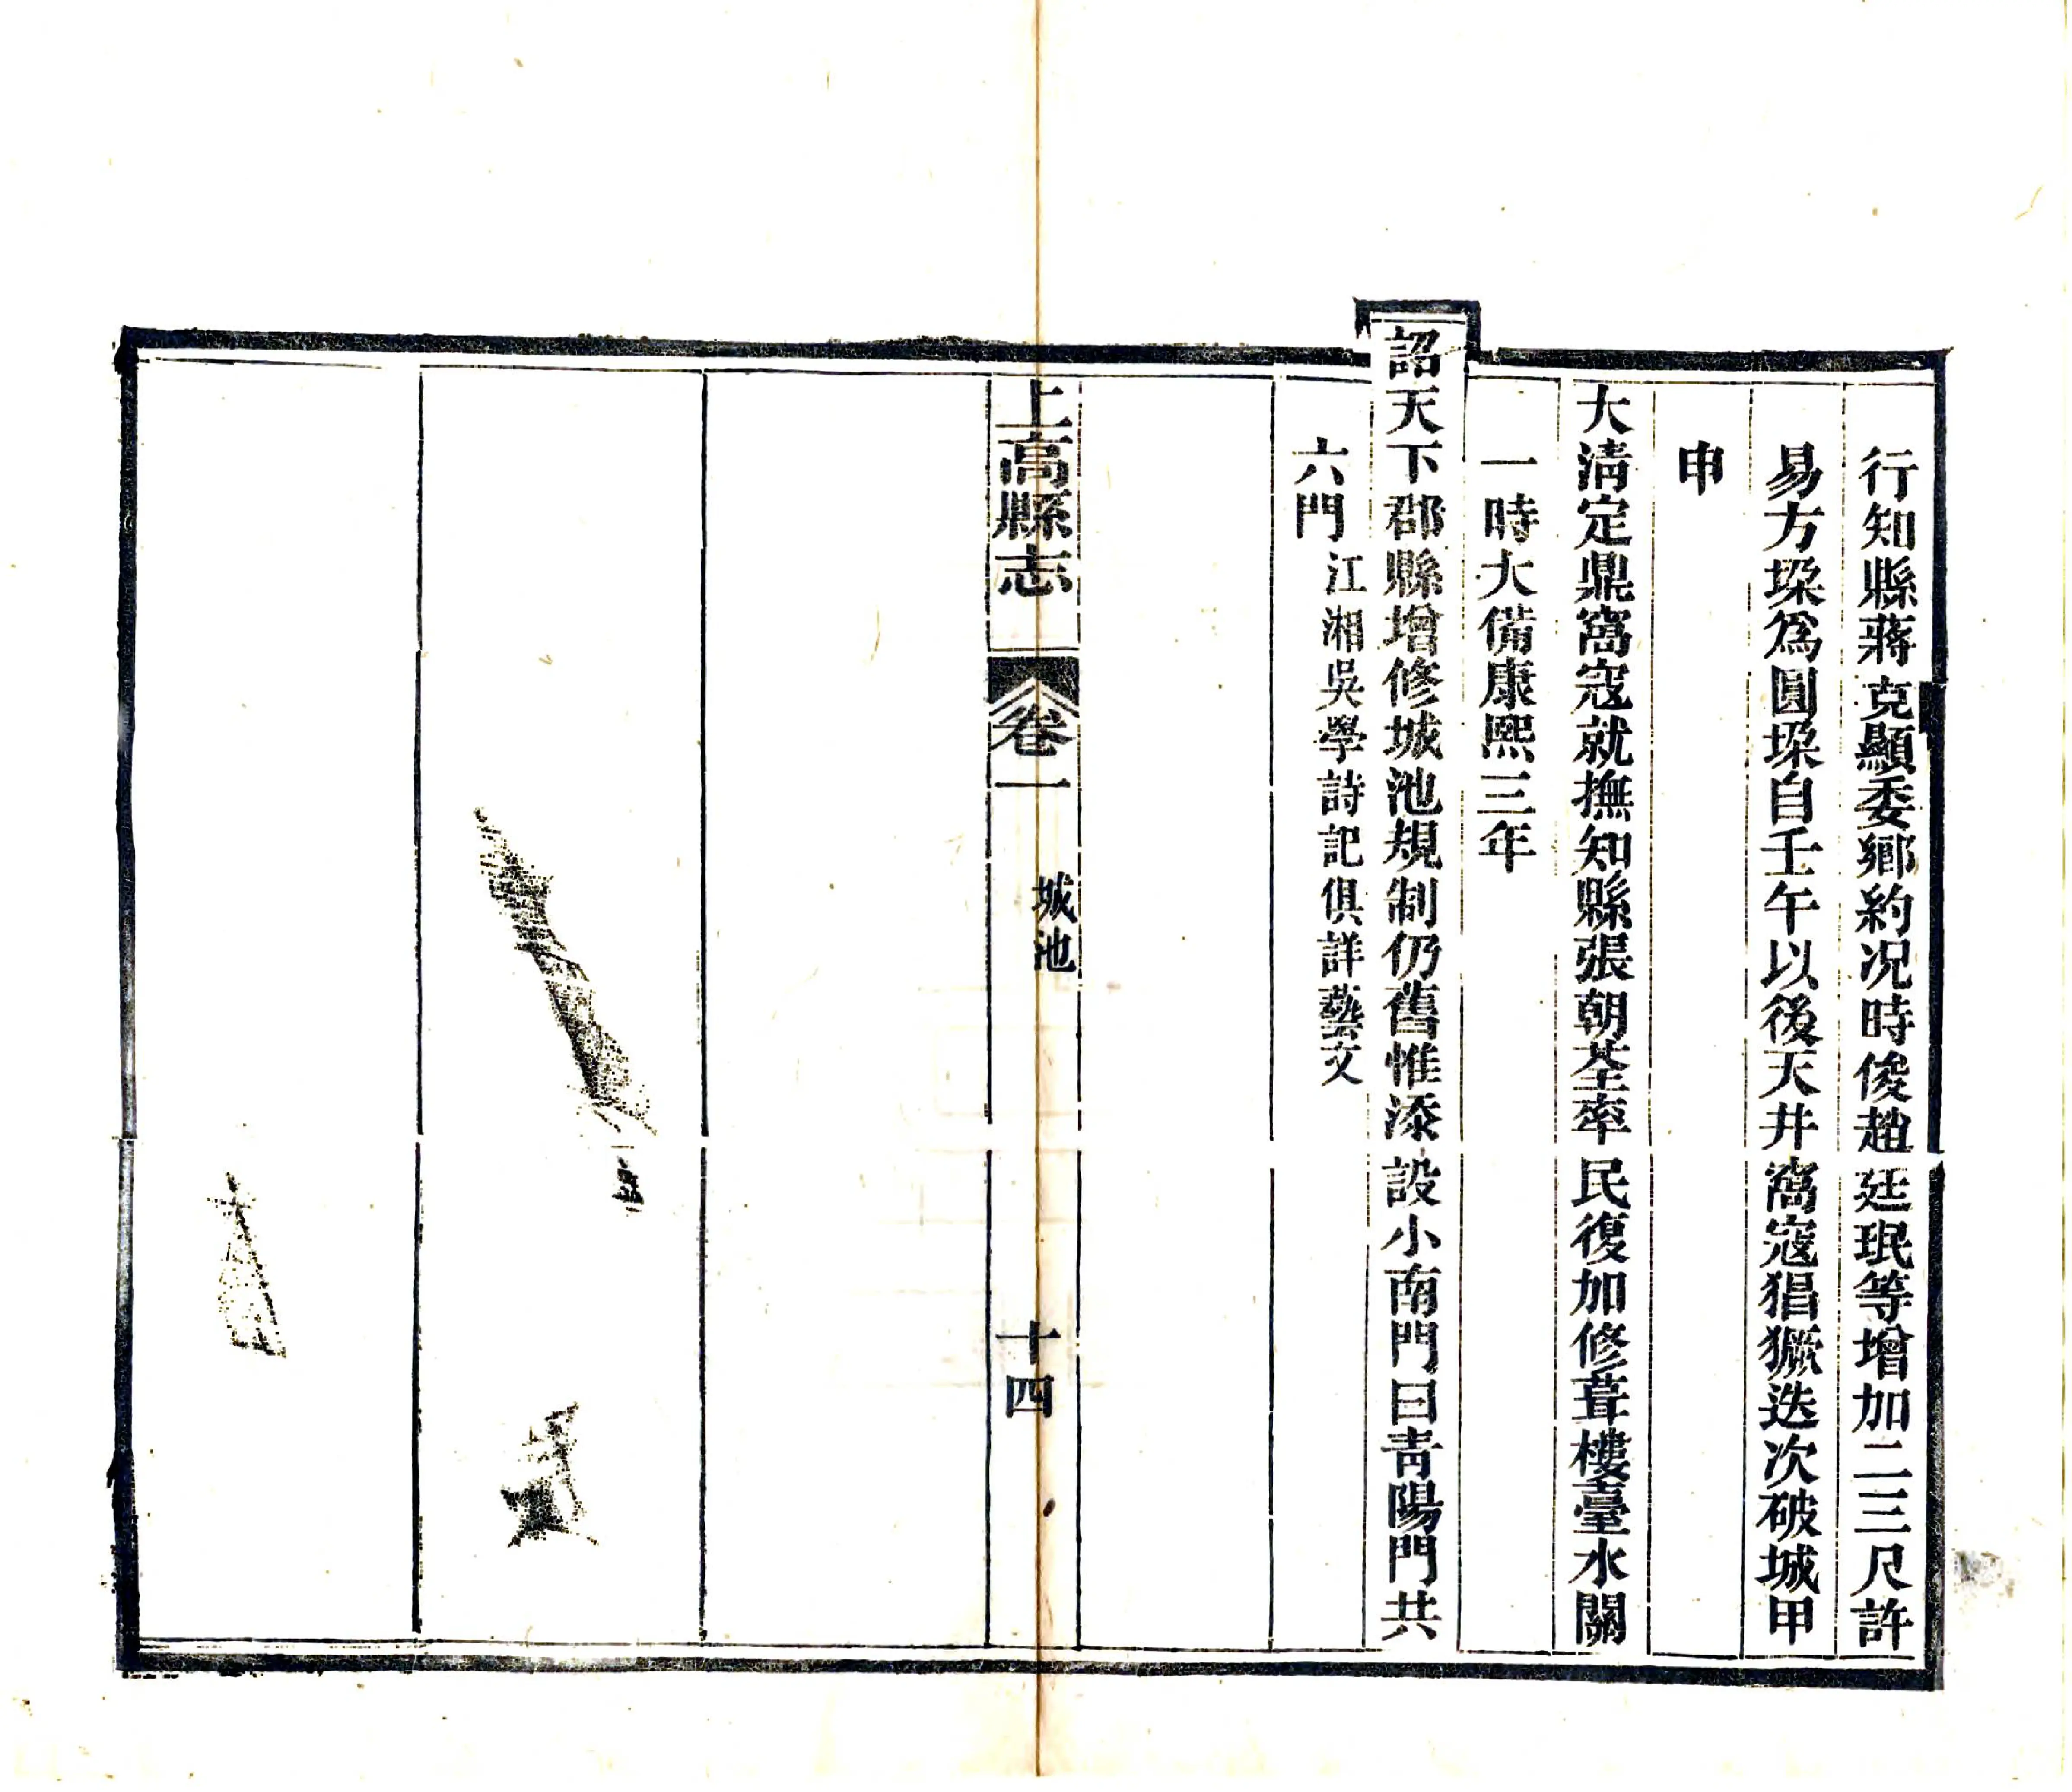 行知縣蔣克顯委鄉約况時俊趙廷珉等增加二三尺許
易方垜爲圓垜自壬午以後天井窩寇猖獗迭次破城甲
申
大淸定鼎窩寇就撫知縣張朝荃率民復加修葺樓臺水關
一時大備康熙三年
詔天下郡縣增修城池規制仍舊惟添設小南門曰靑陽門共
六門江湘吳學詩記俱詳藝文
上高縣志 卷一 城池 十四